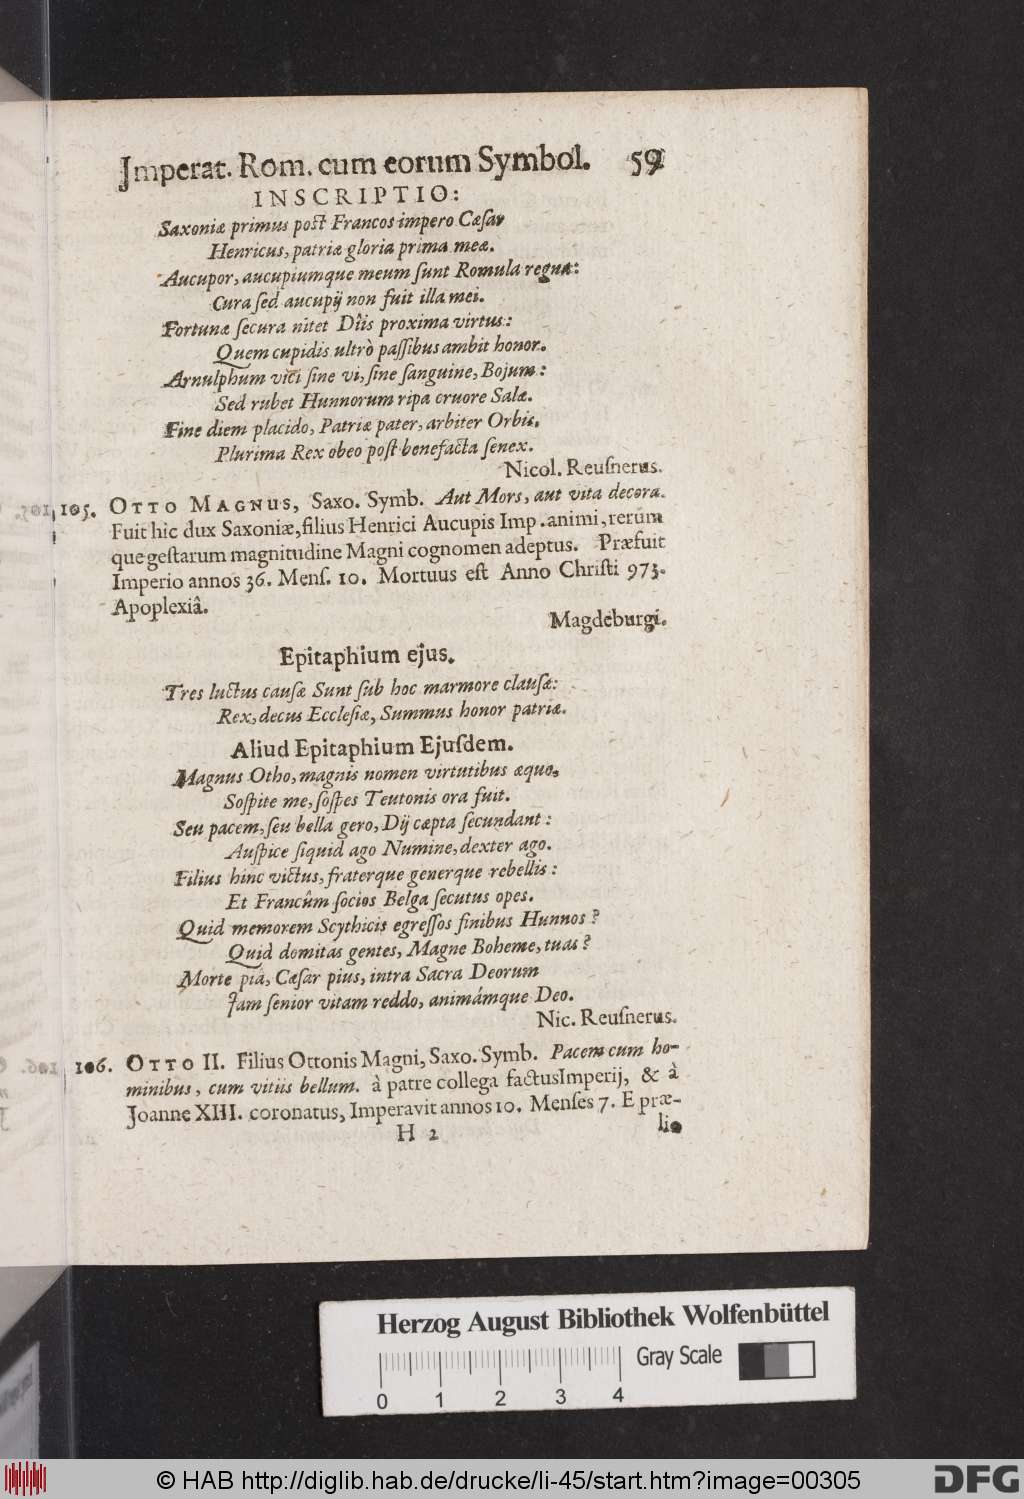 Jmperat. Rom. cum eorum Symbol. 59
INSCRIPTIO:
Saxoniæ primus post Francos impero Cæſar
Henricus, patriæ gloria prima meæ.
Aucupor, aucupiumque meum ſunt Romula regna:
Cura ſed aucupij non fuit illa mei.
Fortunæ ſecura nitet Dîis proxima virtus:
Quem cupidis ultrò paſſibus ambit honor.
Arnulphum vici ſine vi, ſine ſanguine, Bojum:
Sed rubet Hunnorum ripa cruore Salæ.
Fine diem placido, Patriæ pater, arbiter Orbis,
Plurima Rex obeo poſt benefacta ſenex.
Nicol. Reuſnerus.
105. OTTO MAGNUS, Saxo. Symb. Aut Mors, aut vita decora.
Fuit hic dux Saxoniæ, filius Henrici Aucupis Imp. animi, rerum
que geſtarum magnitudine Magni cognomen adeptus. Præfuit
Imperio annos 36. Menſ. 10. Mortuus eſt Anno Chriſti 973.
Apoplexiâ.
Magdeburgi.
Epitaphium ejus.
Tres luctus cauſæ Sunt ſub hoc marmore clauſæ:
Rex, decus Eccleſiæ, Summus honor patriæ.
Aliud Epitaphium Ejuſdem.
Magnus Otho, magnis nomen virtutibus æquo,
Soſpite me, ſoſpes Teutonis ora fuit.
Seu pacem, ſeu bella gero, Dij cæpta ſecundant:
Auſpice ſiquid ago Numine, dexter ago.
Filius hinc victus, fraterque generque rebellis:
Et Francûm ſocios Belga ſecutus opes.
Quid memorem Scythicis egreſſos finibus Hunnos?
Quid domitas gentes, Magne Boheme, tuas?
Morte piâ, Cæſar pius, intra Sacra Deorum
Jam ſenior vitam reddo, animámque Deo.
Nic. Reuſnerus.
106. OTTO II. Filius Ottonis Magni, Saxo. Symb. Pacem cum ho-
minibus, cum vitiis bellum. à patre collega factus Imperij, & à
Joanne XIII. coronatus, Imperavit annos 10. Menſes 7. E præ-
H 2 lio
Herzog August Bibliothek Wolfenbüttel
Gray Scale
0 1 2 3 4
© HAB http://diglib.hab.de/drucke/li-45/start.htm?image=00305
DFG